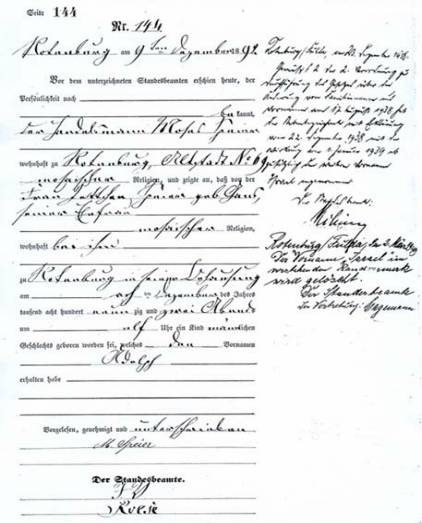 Seite 144
Nr. 144
Rotenburg am 9ten Dezember 1892.
Vor dem unterzeichneten Standesbeamten erschien heute, der
Persönlichkeit nach
bekannt,
der Handelsmann Moses Speier
wohnhaft zu Rotenburg Altstadt No 69
mosaischer Religion, und zeigte an, daß von der
Frau Jettchen Speier geb. Gans,
seiner Ehefrau
mosaischer Religion,
wohnhaft bei ihm
zu Rotenburg in seiner Behausung
am ten Dezember des Jahres
tausend acht hundert neunzig und zwei Abends
um elf Uhr ein Kind männlichen
Geschlechts geboren worden sei, welches den Vornamen
Adolph
erhalten habe
Vorgelesen, genehmigt und unterschrieben
M. Speier
Der Standesbeamte.
Rotenburg/Fulda, den Dezember
Gemäß § 2 der 2. Verordnung zur
Durchführung des Gesetzes über die
Änderung von Familiennamen und
Vornamen vom 17. August 1938, hat
22. Dezember 1938 mit
1. Januar 1939 ab
zusätzlich den weiteren Vornamen
Israel angenommen
Der Standesbeamte:
Rotenburg Fulda, den
Der Vorname Israel im
Randvermerk
wird gelöscht.
Der Standesbeamte
In Vertretung: